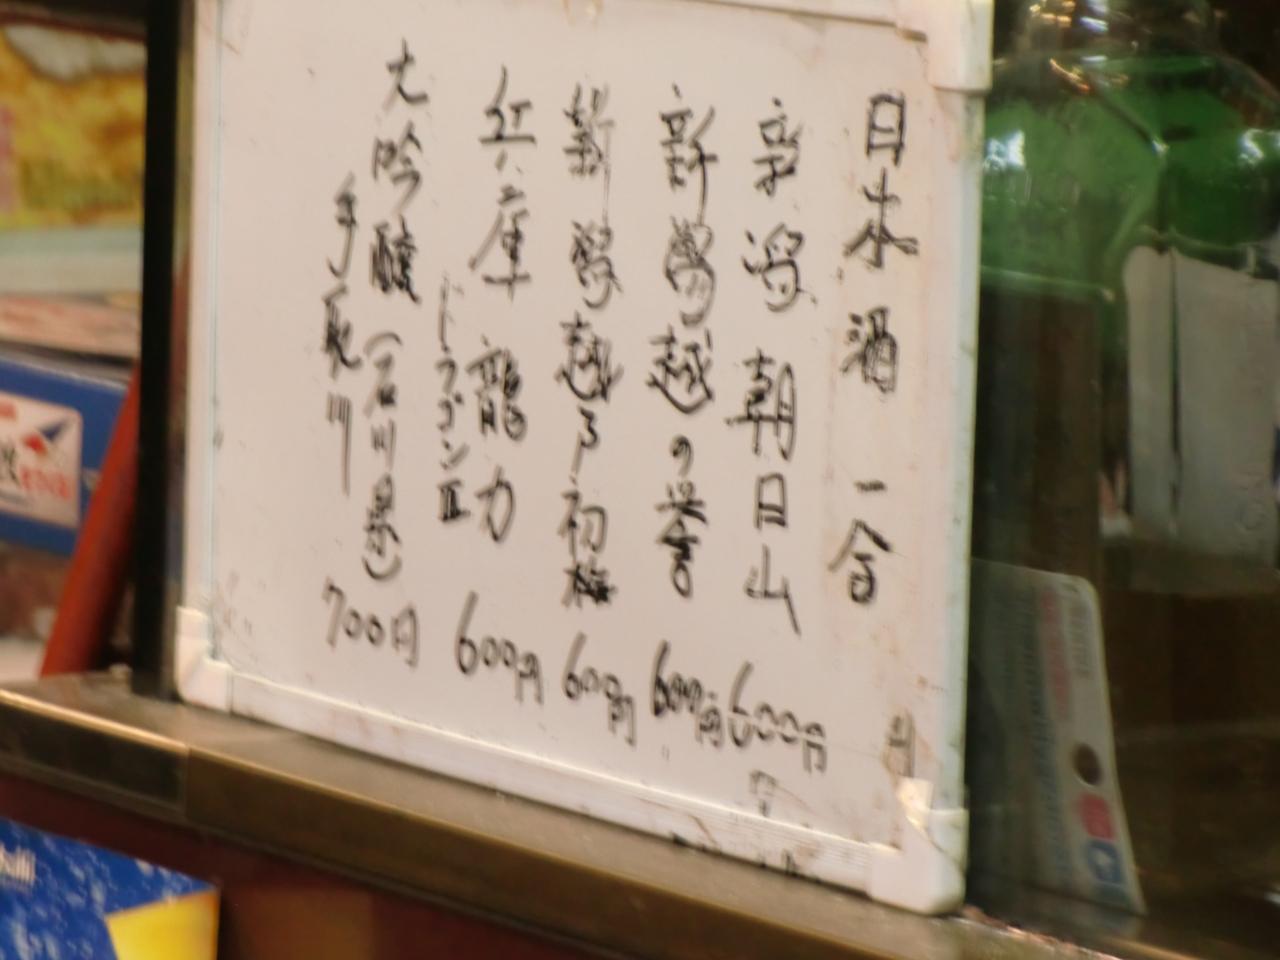 日本酒 一合
新潟 朝日山 600円
新潟 越の誉 600円
新潟 越乃初梅 600円
兵庫 龍力 600円
ドラゴン
大吟醸(石川県)
手取川 700円